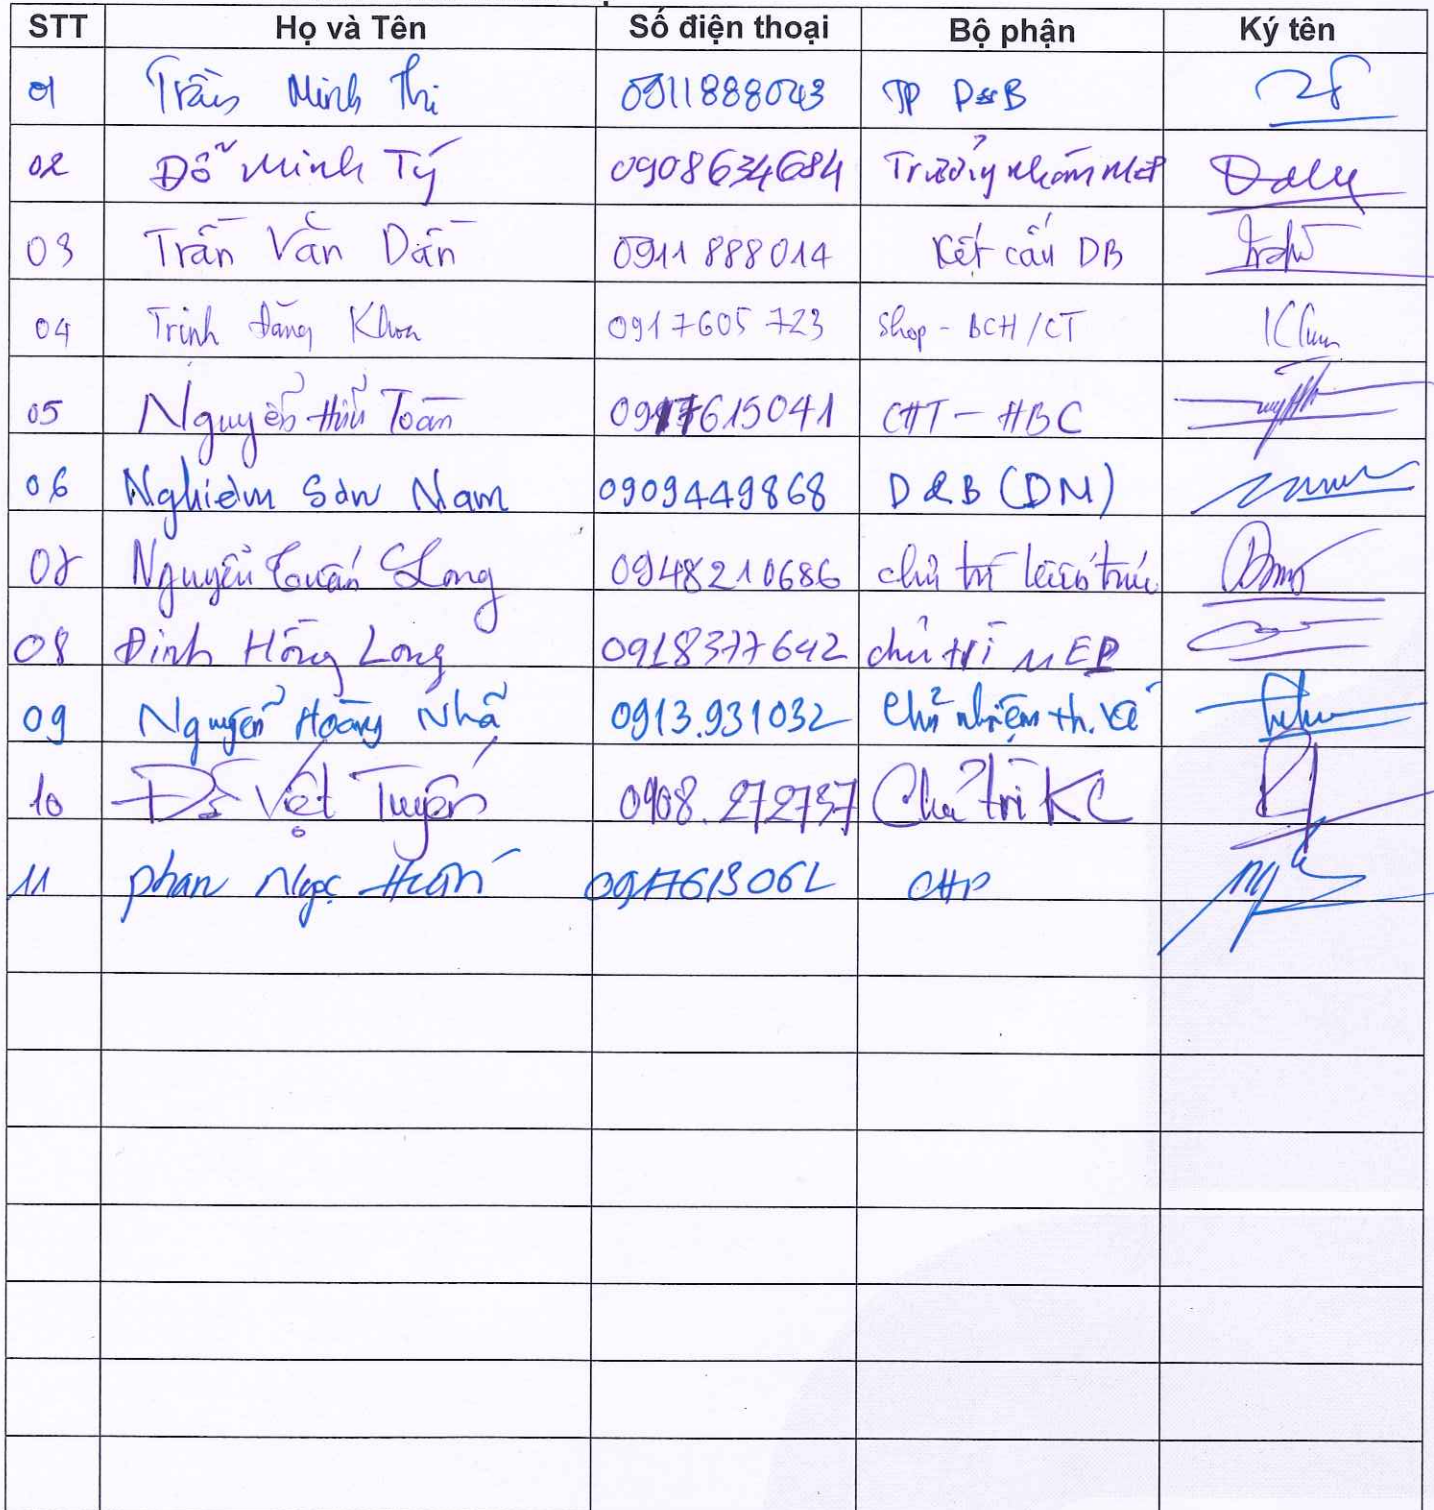 STT Họ và Tên Số điện thoại Bộ phận Ký tên
01 Trần Minh Thi 0911888043 TP D&B
02 Đỗ Minh Tý 0908634684 Trưởng nhóm MEP
03 Trần Văn Dần 0911 888014 Kết cấu DB
04 Trịnh Đăng Khoa 0917605 723 Shop - BCH/CT
05 Nguyễn Hữu Toàn 0917615041 CHT - HBC
06 Nghiêm Sơn Nam 0909449868 D&B (DM)
07 Nguyễn Tuấn Long 0948210686 chủ trì kiến trúc
08 Đinh Hồng Long 0918377642 chủ trì MEP
09 Nguyễn Hoàng Nhã 0913.931032 Chủ nhiệm th. kế
10 Đỗ Việt Tuyến 0908.272737 Chủ trì KC
11 phan Ngọc Huấn 0917613062 CHP